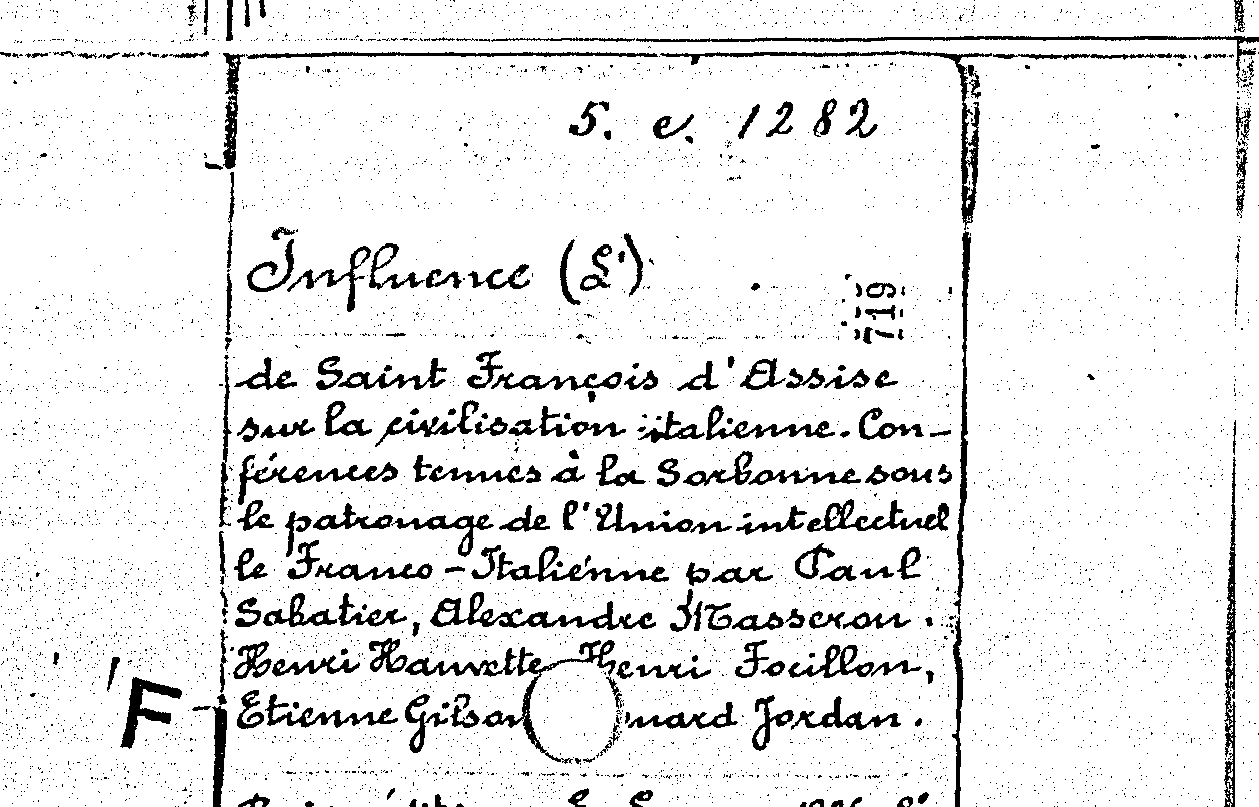 5. e. 1282
Influence (L')
719
de Saint François d'Assise
sur la civilisation italienne. Con-
férences tenues à la Sorbonne sous
le patronage de l'Union intellectuel
le Franco-Italienne par Paul
Sabatier, Alexandre Masseron.
Henri Hauvette Henri Focillon,
Etienne Gilson Jordan.
F